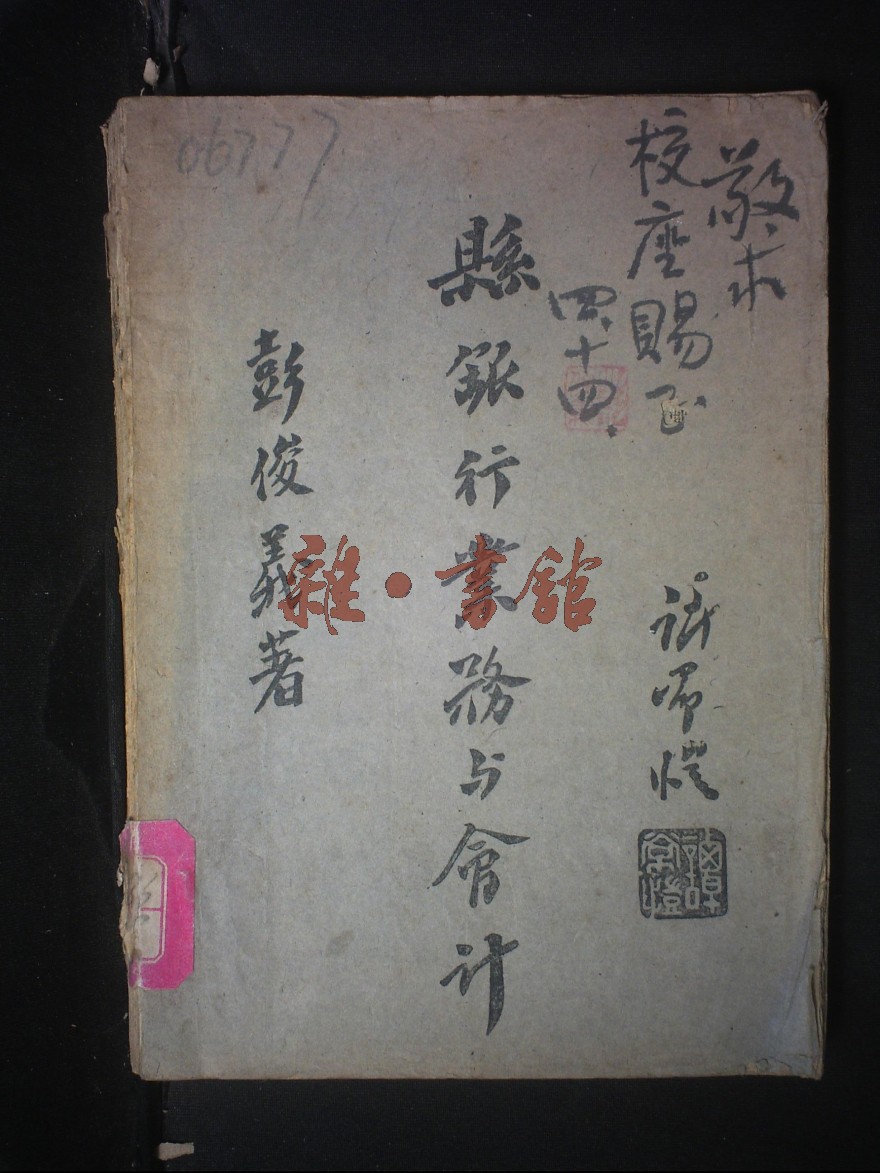 06777
敬求
校座賜正
四.十四.
縣銀行業務与會計
彭俊義著
雜·書館